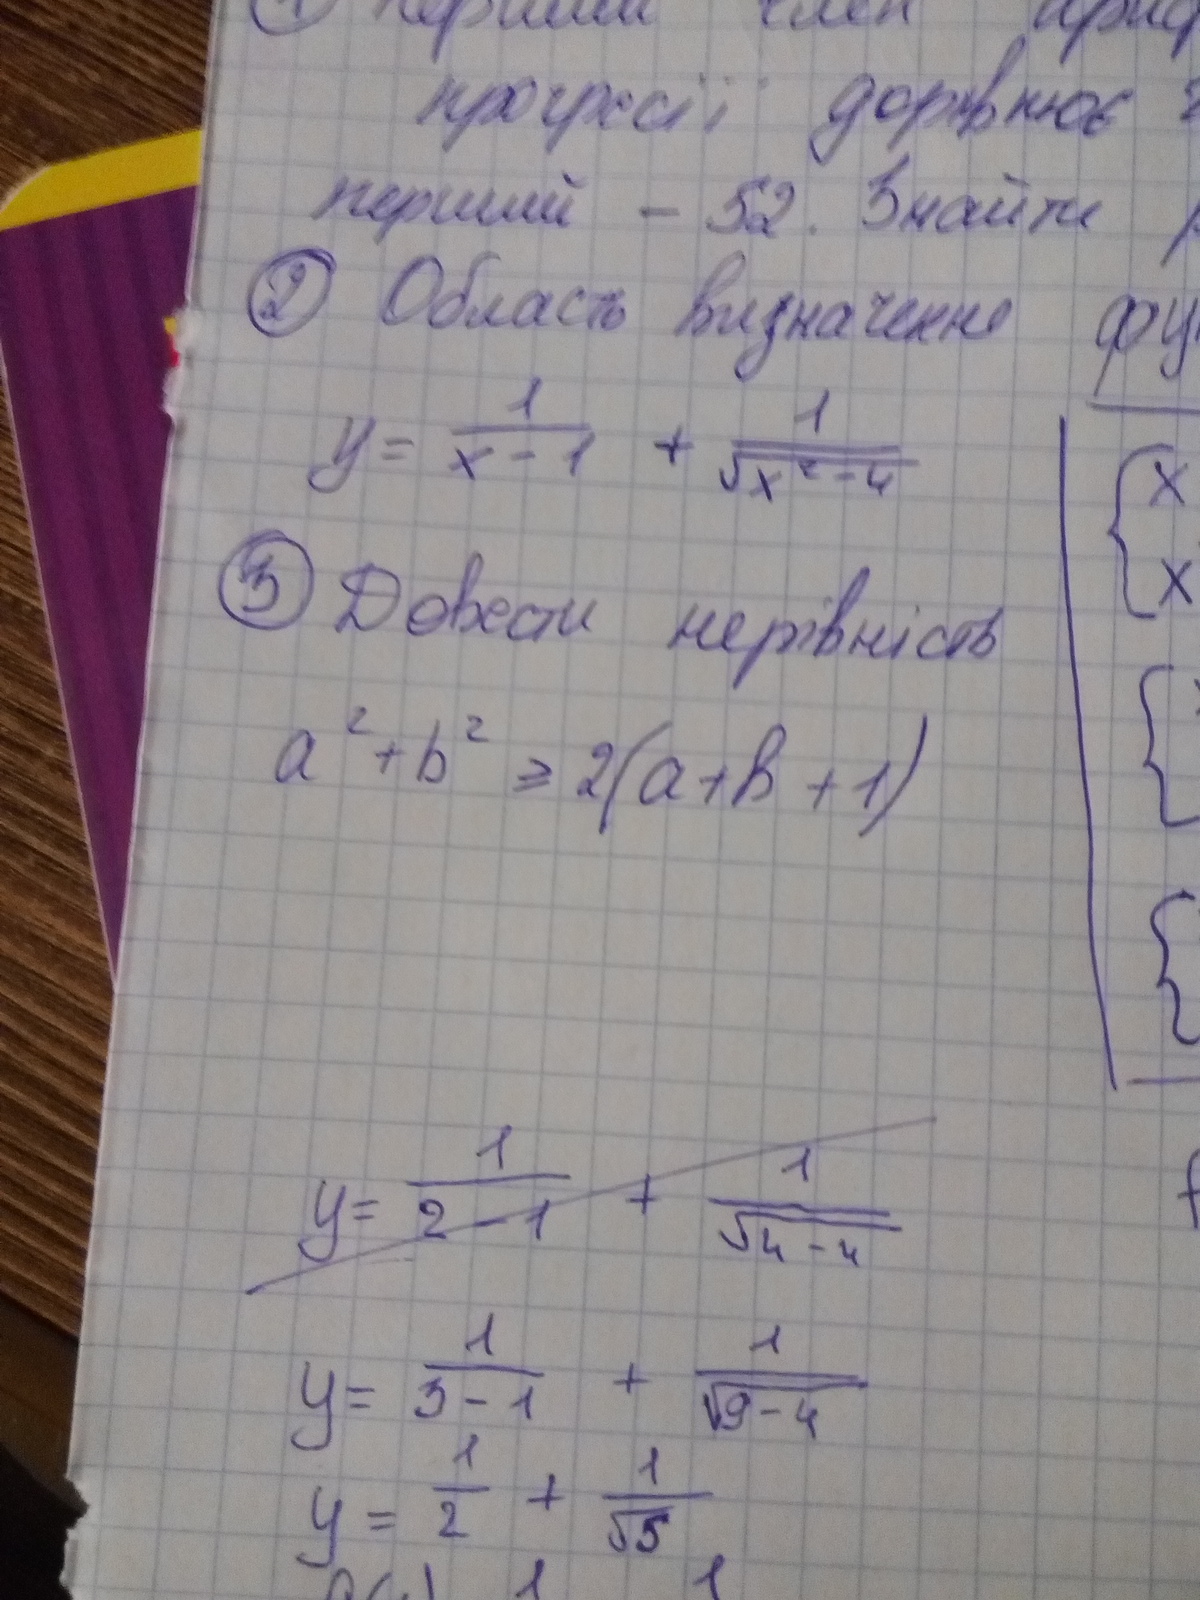 ① Перший член ариф
прогресії дорівнює
перший - 52. Знайти
② Область визначення фун
y = 1/(x - 1) + 1/√(x² - 4)
{ x
x
③ Довести нерівність
a² + b² ≥ 2(a + b + 1)
y = 1/(2 - 1) + 1/√(4 - 4)
y = 1/(3 - 1) + 1/√(9 - 4)
y = 1/2 + 1/√5